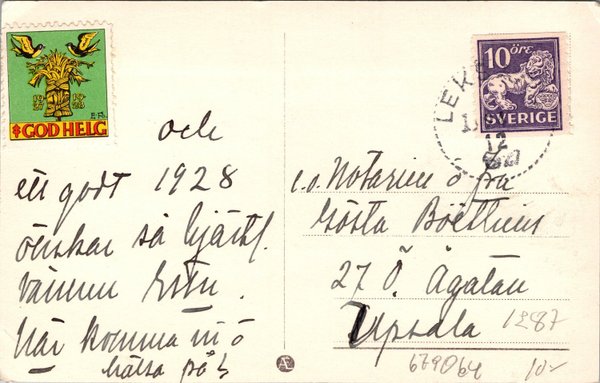 19 19
27 28
E.F.
GOD HELG
10 ÖRE
SVERIGE
LEKS
12
27
och
ett godt 1928
önskar så hjärtl.
vännen
När komma ni o
hälsa på
c.o. Notarien o fru
Gösta Böethius
27 Ö. Ågatan
Upsala
1287
10-